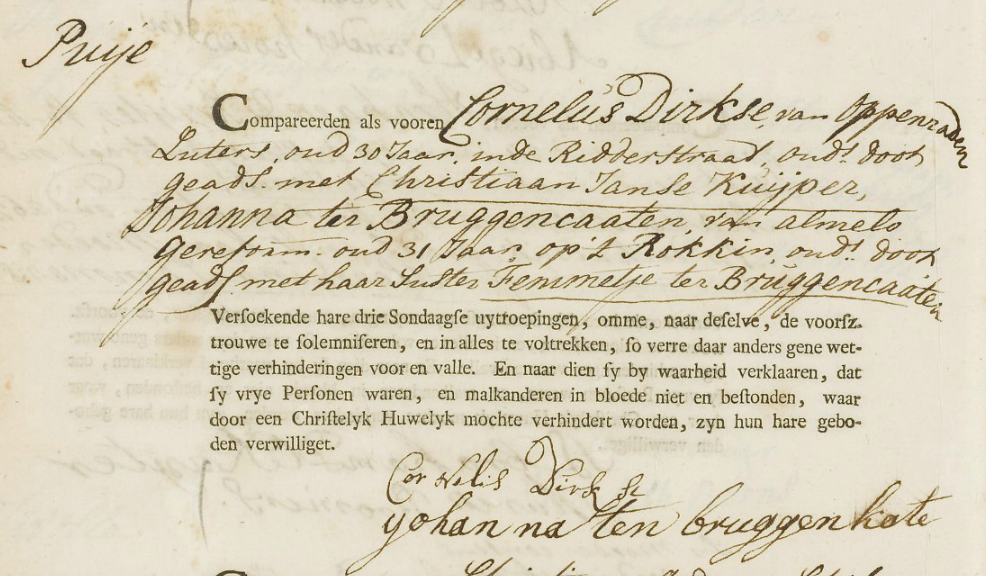 Puije
Compareerden als vooren Cornelus Dirkse, van Oppenraaen
Luters, oud 30 Jaar, in de Ridderstraat, oudt doot
geads. met Christiaan Janse Kuijper,
Johanna ter Bruggencaaten, van almelo
gereform. oud 31 Jaar, op 't Rokkin, oudt doot
geads. met haar Suster Femmetje ter Bruggencaaten
Verſoekende hare drie Sondaagſe uytroepingen, omme, naar deſelve, de voorſz.
trouwe te ſolemniſeren, en in alles te voltrekken, ſo verre daar anders gene wet-
tige verhinderingen voor en valle. En naar dien ſy by waarheid verklaaren, dat
ſy vrye Perſonen waren, en malkanderen in bloede niet en beſtonden, waar
door een Chriſtelyk Huwelyk mochte verhindert worden, zyn hun hare gebo-
den verwilliget.
Cornelis Dirkse
yohanna ten bruggenkate